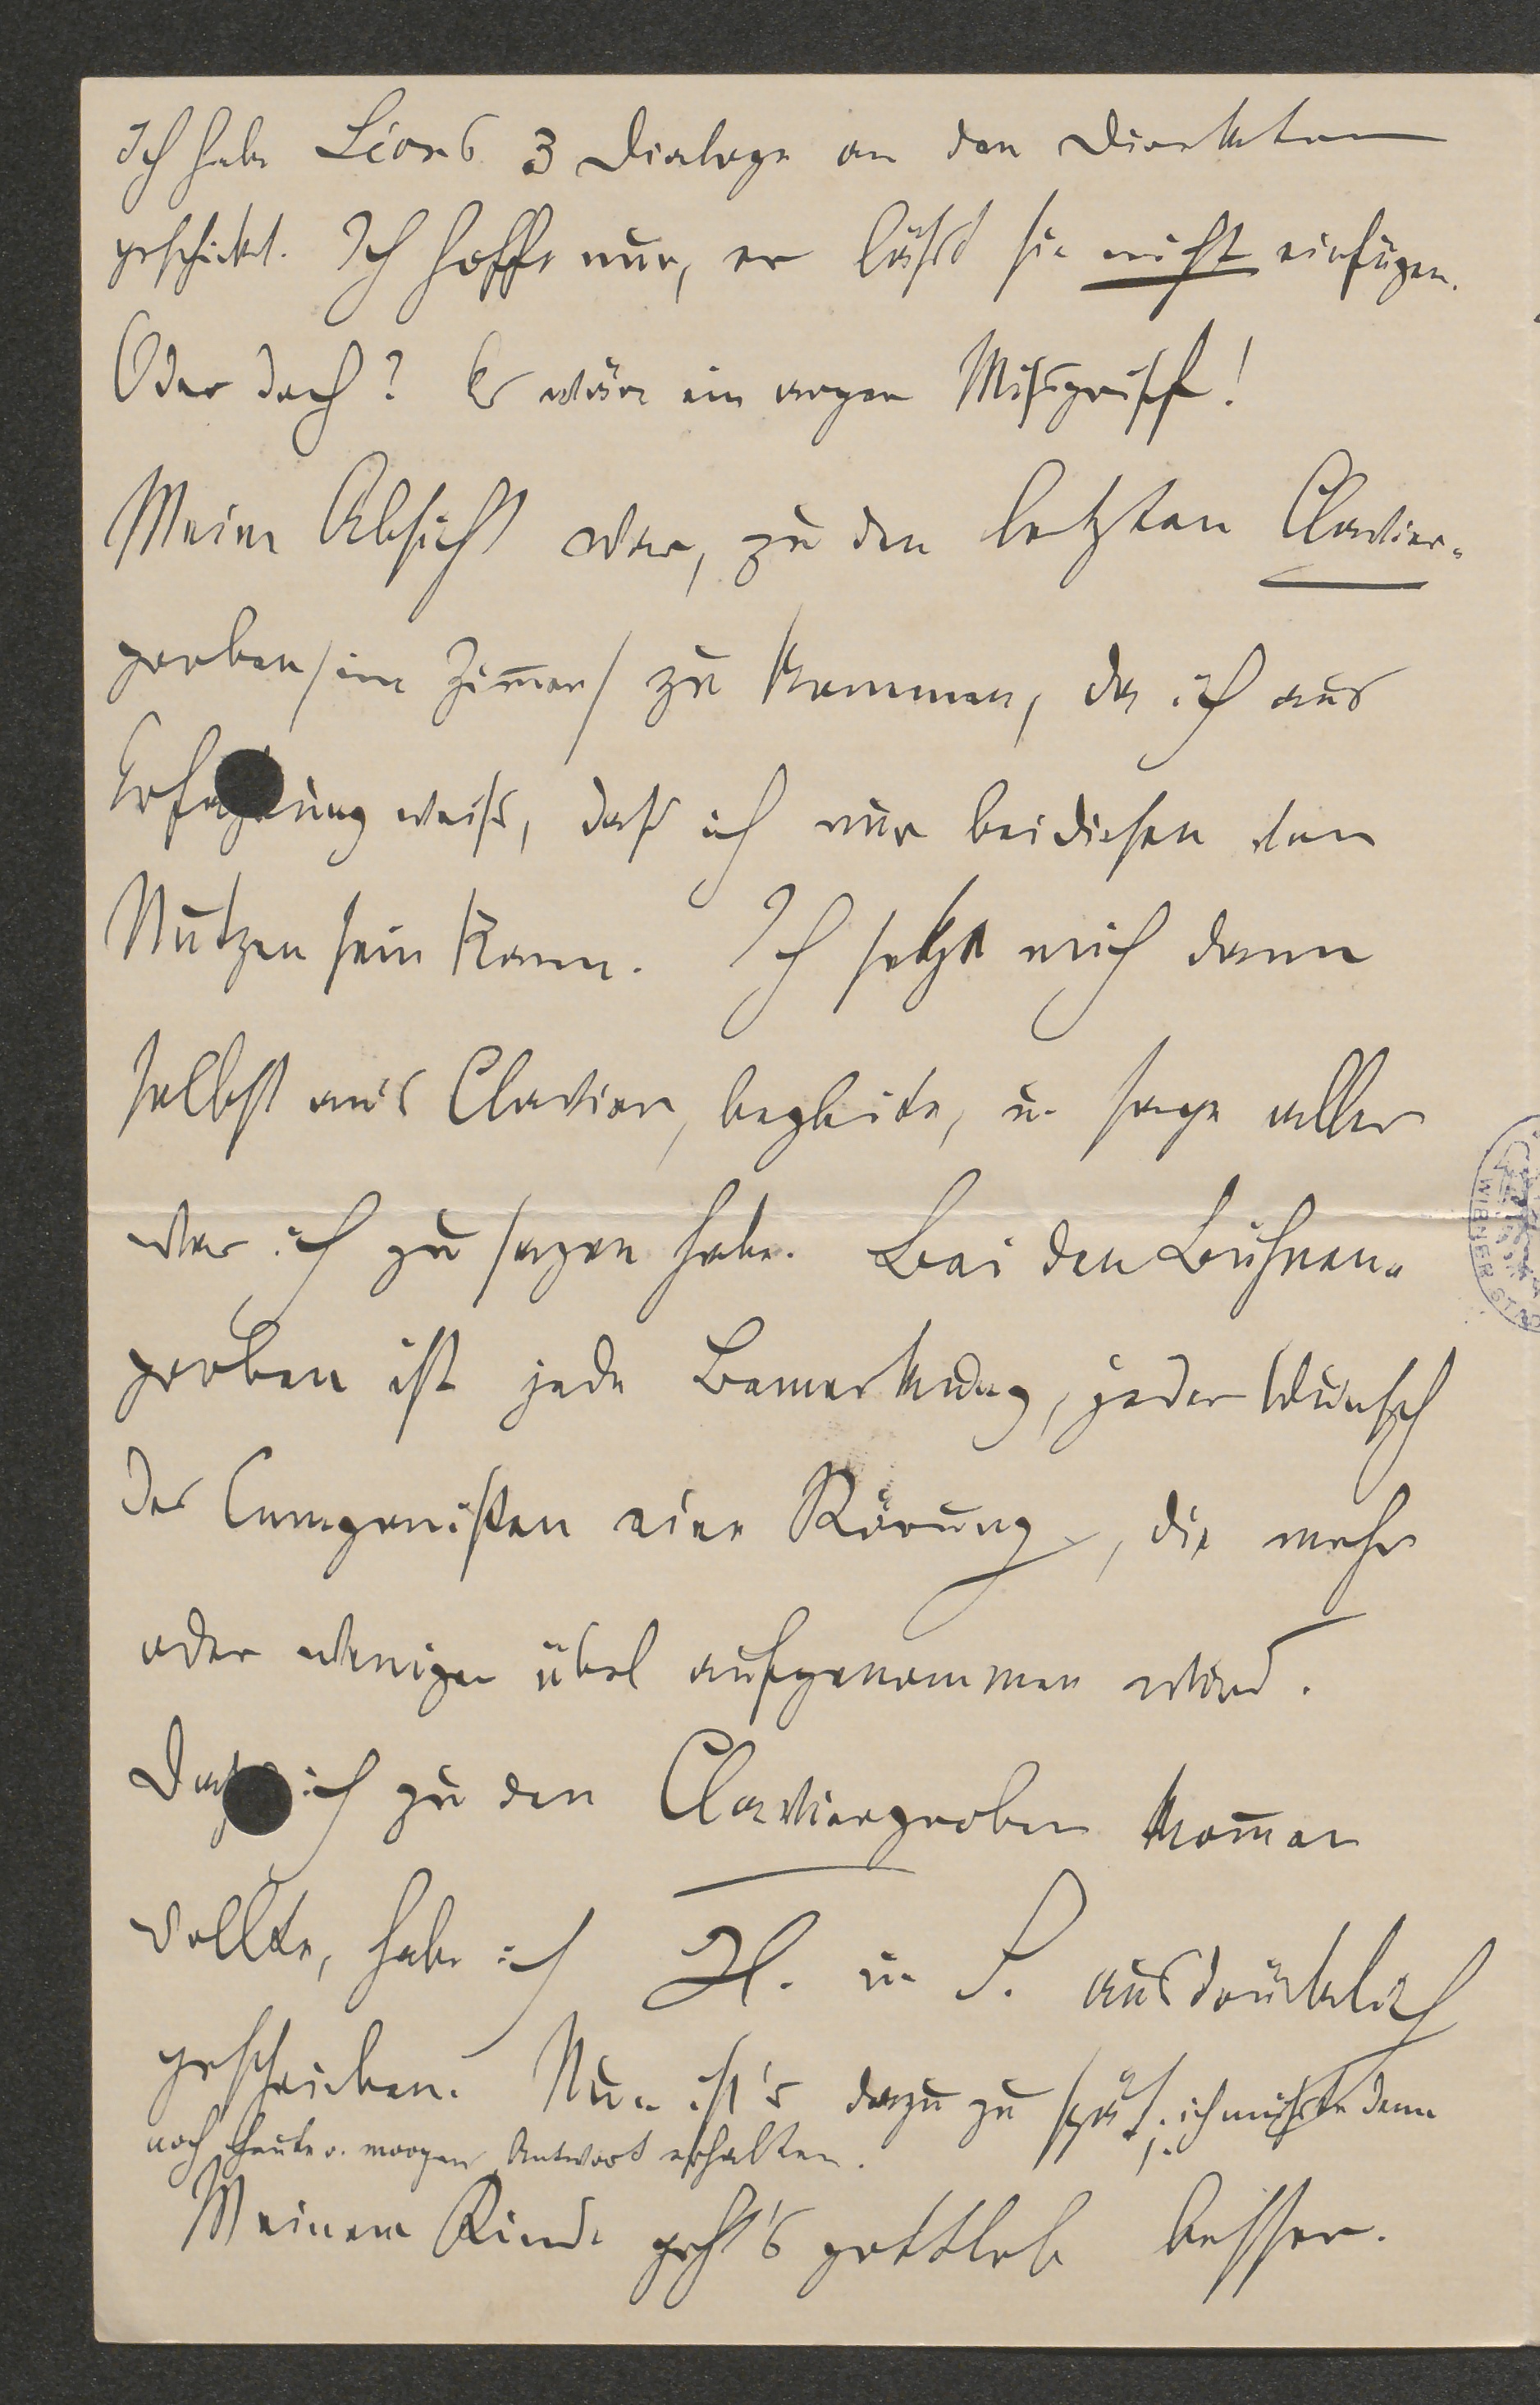 Ich habe Léons 3 Dialoge an den Direktor
geschickt. Ich hoffe nur, er läßt sie nicht einfügen.
Oder doch? Es wäre ein arger Mißgriff!
Meine Absicht war, zu den letzten Clavier-
proben /im Zim̅er/ zu kommen, da ich aus
Erfahrung weiß, daß ich nur bei diesen von
Nutzen sein kann. Ich setze mich dann
selbst an's Clavier, begleite, u. sage alles
was ich zu sagen habe. Bei den Bühnen-
proben ist jede Bemerkung, jeder Wunsch
des Componisten eine Störung, die mehr
oder weniger übel aufgenommen wird.
Daß ich zu den Clavierproben kom̅en
wollte, habe ich H. u. S. ausdrücklich
geschrieben. Nun ist's dazu zu spät; ich müßte denn
noch heute o. morgen Antwort erhalten.
Meinem Kinde geht's gottlob besser.
WIENER STAD